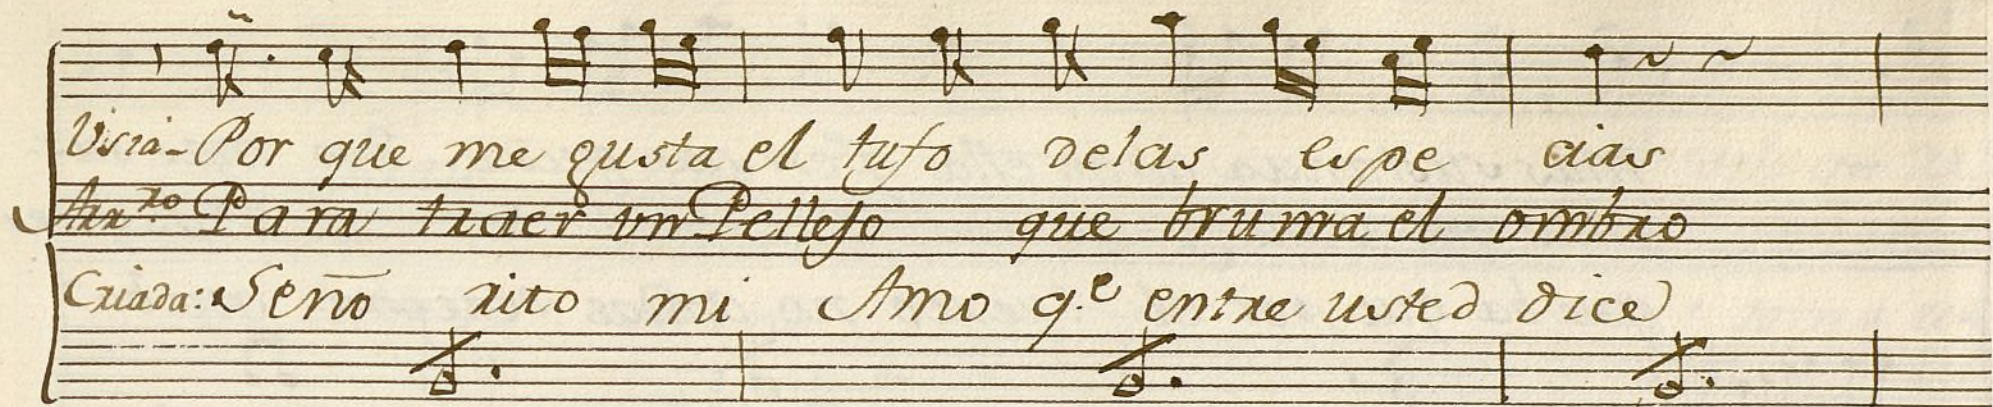 Visia- Por que me gusta el tufo delas espe cias
Arrᵣₒ Para traer un Pellejo que bruma el ombro
Criada: Seño rito mi Amo q.ᵉ entre usted dice